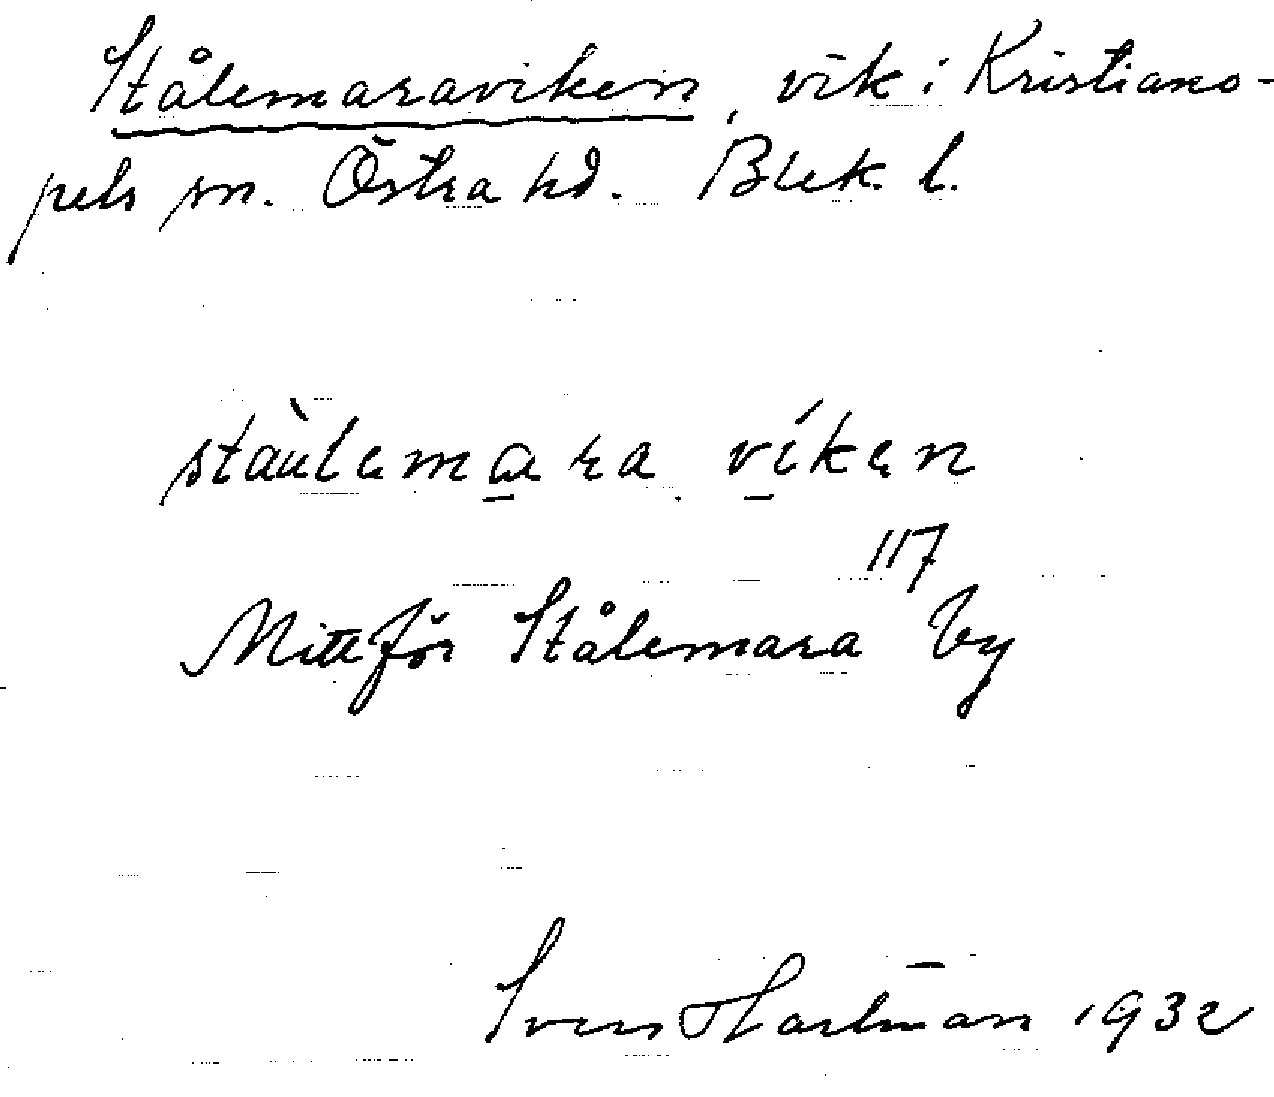 Stålemaraviken, vik i Kristiano-
pels sn. Östra hd. Blek. l.
stàulemara víken
117
Mitt för Stålemara by
Sven Hartman 1932